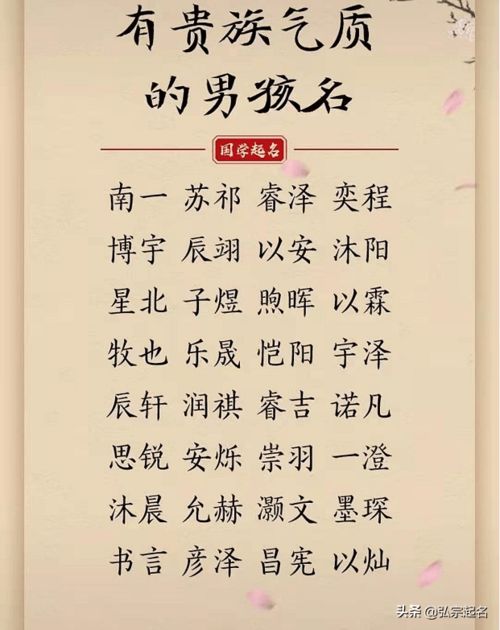 有贵族气质
的男孩名
国学起名
南一 苏祁 睿泽 奕程
博宇 辰翊 以安 沐阳
星北 子煜 煦晖 以霖
牧也 乐晟 恺阳 宇泽
辰轩 润祺 睿吉 诺凡
思锐 安烁 崇羽 一澄
沐晨 允赫 灏文 墨琛
书言 彦泽 昌宪 以灿
头条 @弘宗起名